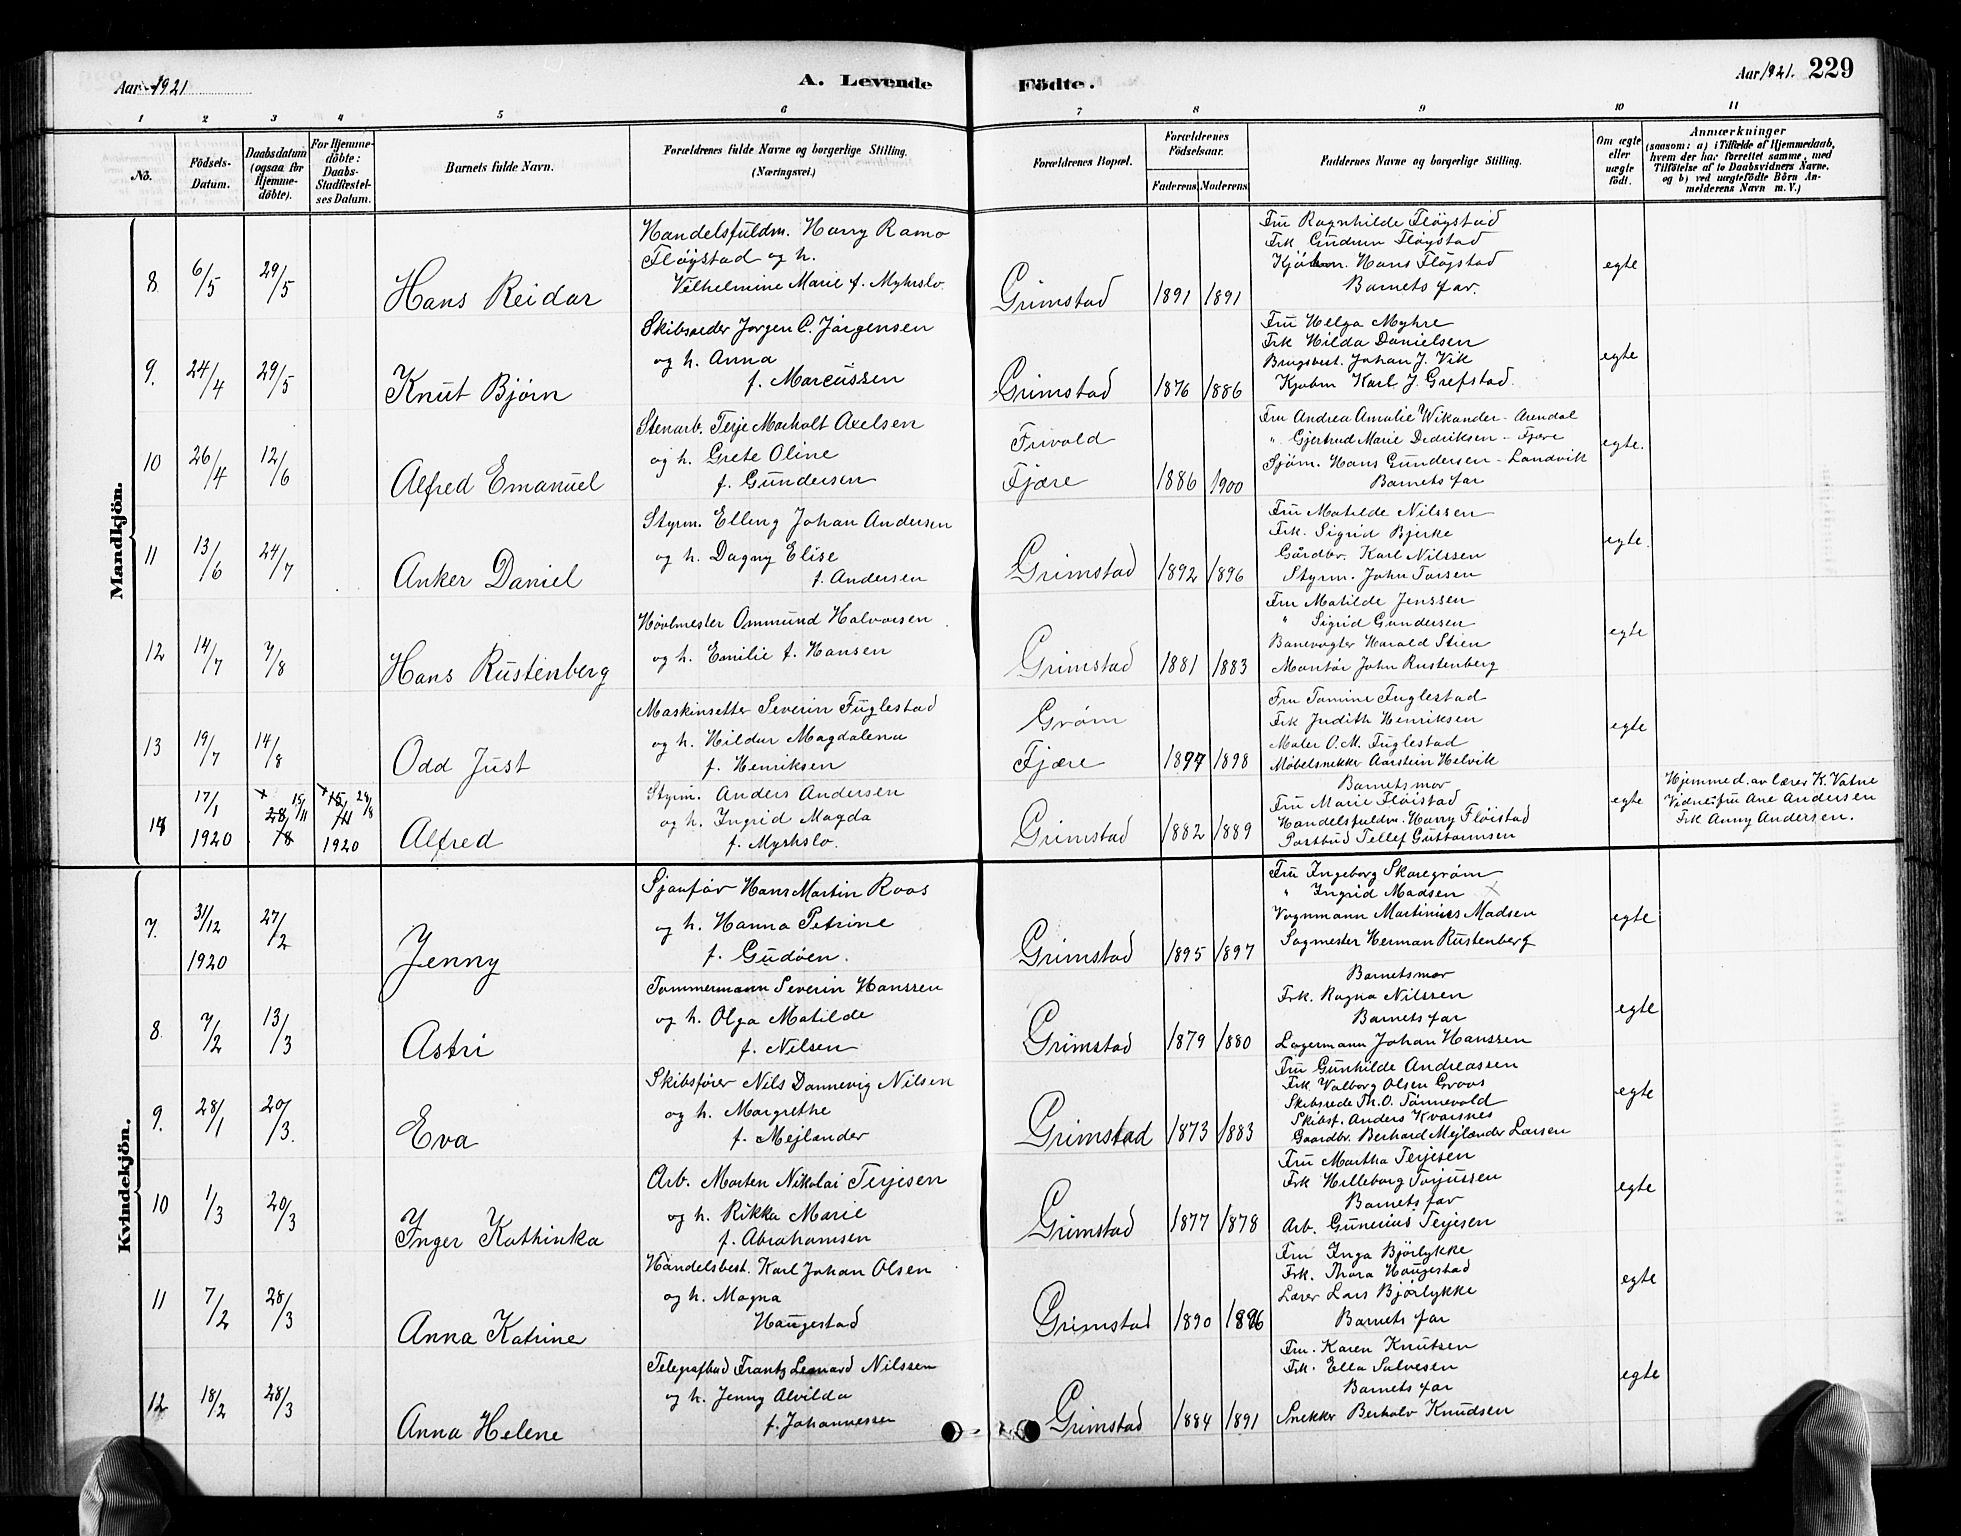 Aar 1921
A. Levende
Födte.
Aar 1921. 229
1 2 3 4 5 6 7 8 9 10 11
No.
Födsels-Datum.
Daabsdatum (ogsaa for Hjemme-döbte).
For Hjemme-döbte: Daabs-Stadfæstel-ses Datum.
Barnets fulde Navn.
Forældrenes fulde Navne og borgerlige Stilling. (Næringsvei.)
Forældrenes Bopæl.
Forældrenes Födselsaar.
Faderens Moderens
Faddernes Navne og borgerlige Stilling.
Om ægte eller uægte födt.
Anmærkninger
(saasom: a) i Tilfælde af Hjemmedaab, hvem der har forrettet samme, med Tilföielse af to Daabsvidners Navne, og b) ved uægtefödte Börn An-melderens Navn m. V.)
Mandkjön.
8 6/5 29/5 Hans Reidar
Handelsfuldm. Harry Ramo
Fløystad og h.
Vilhelmine Marie f. Myhrslo.
Grimstad 1891 1891
Fru Ragnhilde Fløystad
Frk Gudrun Fløystad
Kjøbm. Hans Fløystad
Barnets far.
egte
9. 24/4 29/5 Knut Bjørn
Skibsreder Jørgen C. Jørgensen
og h. Anna
f. Marcussen
Grimstad 1876 1886
Fru Helga Myhre
Frk Hilda Danielsen
Brugsbest. Johan J. Vik
Kjøbm Karl J. Grefstad.
egte
10 26/4 12/6 Alfred Emanuel
Stenarb. Terje Morholt Axelsen
og h. Grete Oline
f. Gundersen
Frivold
Fjære 1886 1900
Fru Andrea Amalie Wikander - Arendal
" Gjertrud Marie Dedriksen - Fjære
Sjøm. Hans Gundersen - Landvik
Barnets far
egte.
11 13/6 24/7 Anker Daniel
Styrm. Elling Johan Andersen
og h. Dagny Elise
f. Andersen
Grimstad 1892 1896
Fru Matilde Nilssen
Frk. Sigrid Bjerke
Gårdbr. Karl Nilssen
Styrm. John Torsen
egte.
12 14/7 7/8 Hans Rustenberg
Høvlmester Ommund Halvorsen
og h. Emilie f. Hansen
Grimstad 1881 1883
Fru Matilde Jenssen
" Sigrid Gundersen
Banevogter Harald Stien
Montør John Rustenberg
egte
13 19/7 14/8 Odd Just
Maskinsetter Severin Fuglestad
og h. Hildur Magdalena
f. Henriksen
Grøm
Fjære 1897 1898
Fru Tomine Fuglestad
Frk Judith Henriksen
Maler O. M. Fuglestad
Møbelsnekker Aarstein Helvik
egte
14 17/1 1920 28/8 15/11 15/11 28/8 1920 Alfred
Styrm. Anders Andersen
og h. Ingrid Magda
f. Myrhslo.
Grimstad 1882 1889
Barnets mor
Fru Marie Fløistad
Handelsfuldm. Harry Fløistad
Postbud Tellef Guttormsen
egte
Hjemmed. av lærer K. Vatne
Vidnes fru Ane Andersen
Frk Anny Andersen.
Kvindekjön.
7. 31/12 1920 27/2 Jenny
Sjauför Hans Martin Roos
og h. Hanna Petrine
f. Gudøen.
Grimstad 1895 1897
Fru Ingeborg Skaregrøm
" Ingrid Madsen
Vognmann Martinius Madsen
Sagmester Herman Rustenberg
egte
8 7/2 13/3 Astri
Tømmermann Severin Hanssen
og h. Olga Matilde
f. Nilsen
Grimstad 1879 1880
Barnets mor
Frk. Ragna Nilssen
Barnets far
Lagermann Johan Hanssen
egte
9. 28/1 20/3. Eva
Skibsfører Nils Dannevig Nilsen
og h. Margrethe
f. Mejlænder
Grimstad 1873 1883
Fru Gunhilde Andreassen
Frk Valborg Olsen Groos
Skibsrede Th. O. Tønnevold
Skibsf. Anders Kvarsnes
Gaardbr. Berhard Mejlænder Larsen
egte
10 1/3 20/3 Inger Kathinka
Arb. Morten Nikolai Terjesen
og h. Rikka Marie
f. Abrahamsen
Grimstad 1877 1878
Fru Martha Terjesen
Frk Helleborg Torjussen
Barnets far
Arb. Gunerius Terjesen
egte
11 7/2 28/3 Anna Katrine
Handelsbest. Karl Johan Olsen
og h. Magna
Haugestad
Grimstad 1890 1896
Fru Inga Bjørlykke
Frk. Thora Haugestad
Lærer Lars Bjørlykke
Barnets far
egte
12 18/2 28/3 Anna Helene
Telegrafbud Frantz Leonard Nilssen
og h. Jenny Alvilda
f. Johannessen
Grimstad 1884 1891
Fru. Karen Knutsen
Frk. Ella Salvesen
Barnets far
Snekker Berholv Knudsen
egte